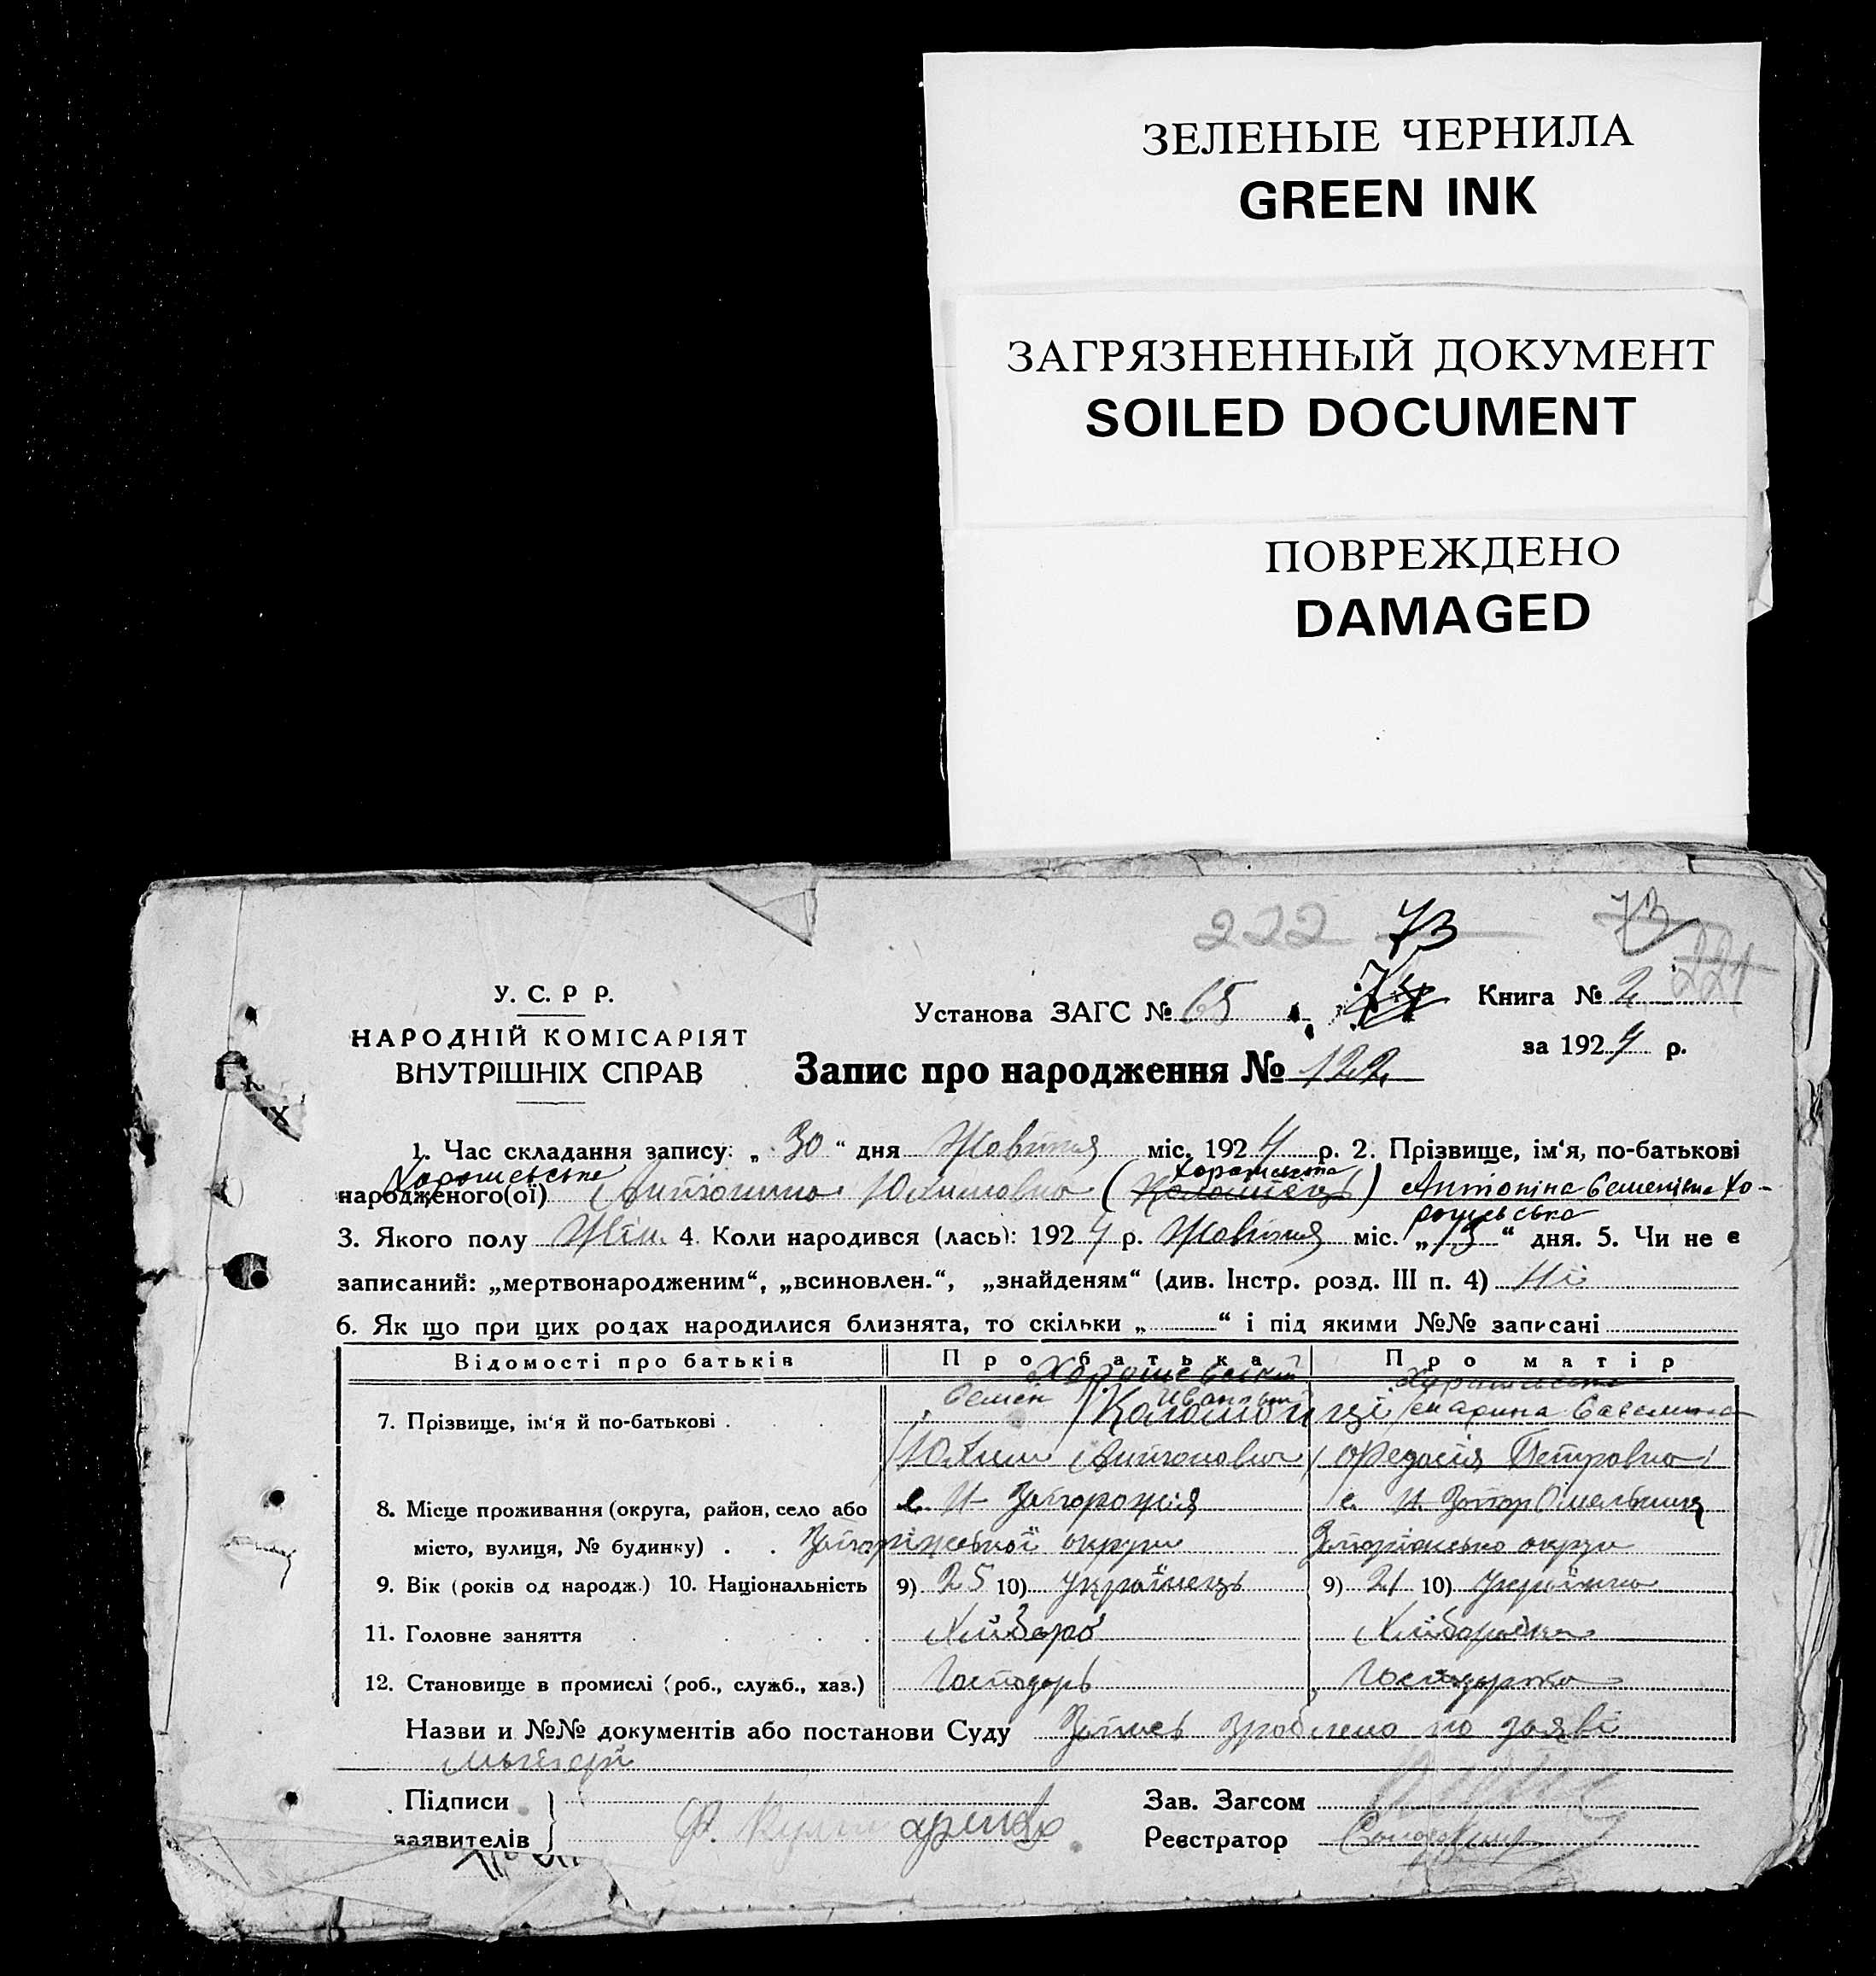 ЗЕЛЕНЫЕ ЧЕРНИЛА
GREEN INK
ЗАГРЯЗНЕННЫЙ ДОКУМЕНТ
SOILED DOCUMENT
ПОВРЕЖДЕНО
DAMAGED
222 73 73
221
У. С. Р Р.
НАРОДНІЙ КОМІСАРІЯТ
ВНУТРІШНІХ СПРАВ
Установа ЗАГС № 65
Книга № 2
за 1924 р.
Запис про народження № 122
1. Час складання запису: „30“ дня Жовтня міс. 1924 р. 2. Прізвище, ім'я, по-батькові
Харошевська
народженого(ої) Антонина Юхимовна (Коломієць) Антоніна Семенівна Хо-
рошевська
3. Якого полу Жін. 4. Коли народився (лась): 1924 р. Жовтня міс. „13“ дня. 5. Чи не є
записаний: „мертвонародженим“, „всиновлен.“, „знайденям“ (див. Інстр. розд. III п. 4) Ні
6. Як що при цих родах народилися близнята, то скільки „ “ і під якими №№ записані
Відомості про батьків Про батька Про матір
Харошевський
Семен Іванович
7. Прізвище, ім'я й по-батькові . Коломійці
Юхим Антонович Федосія Петровна
8. Місце проживання (округа, район, село або с. Н Запорожжя с. Н Запор
місто, вулиця, № будинку) . . Запоріжської округи округи
9. Вік (років од народж.) 10. Національність 9) 25 10) Українець 9) 21 10) Українка
11. Головне заняття Хлібороб Хліборобка
12. Становище в промислі (роб., служб., хаз.) Господарь Господарка
Назви и №№ документів або постанови Суду Запись зроблено по заяві
матері
Підписи
заявителів
Зав. Загсом
Реєстратор